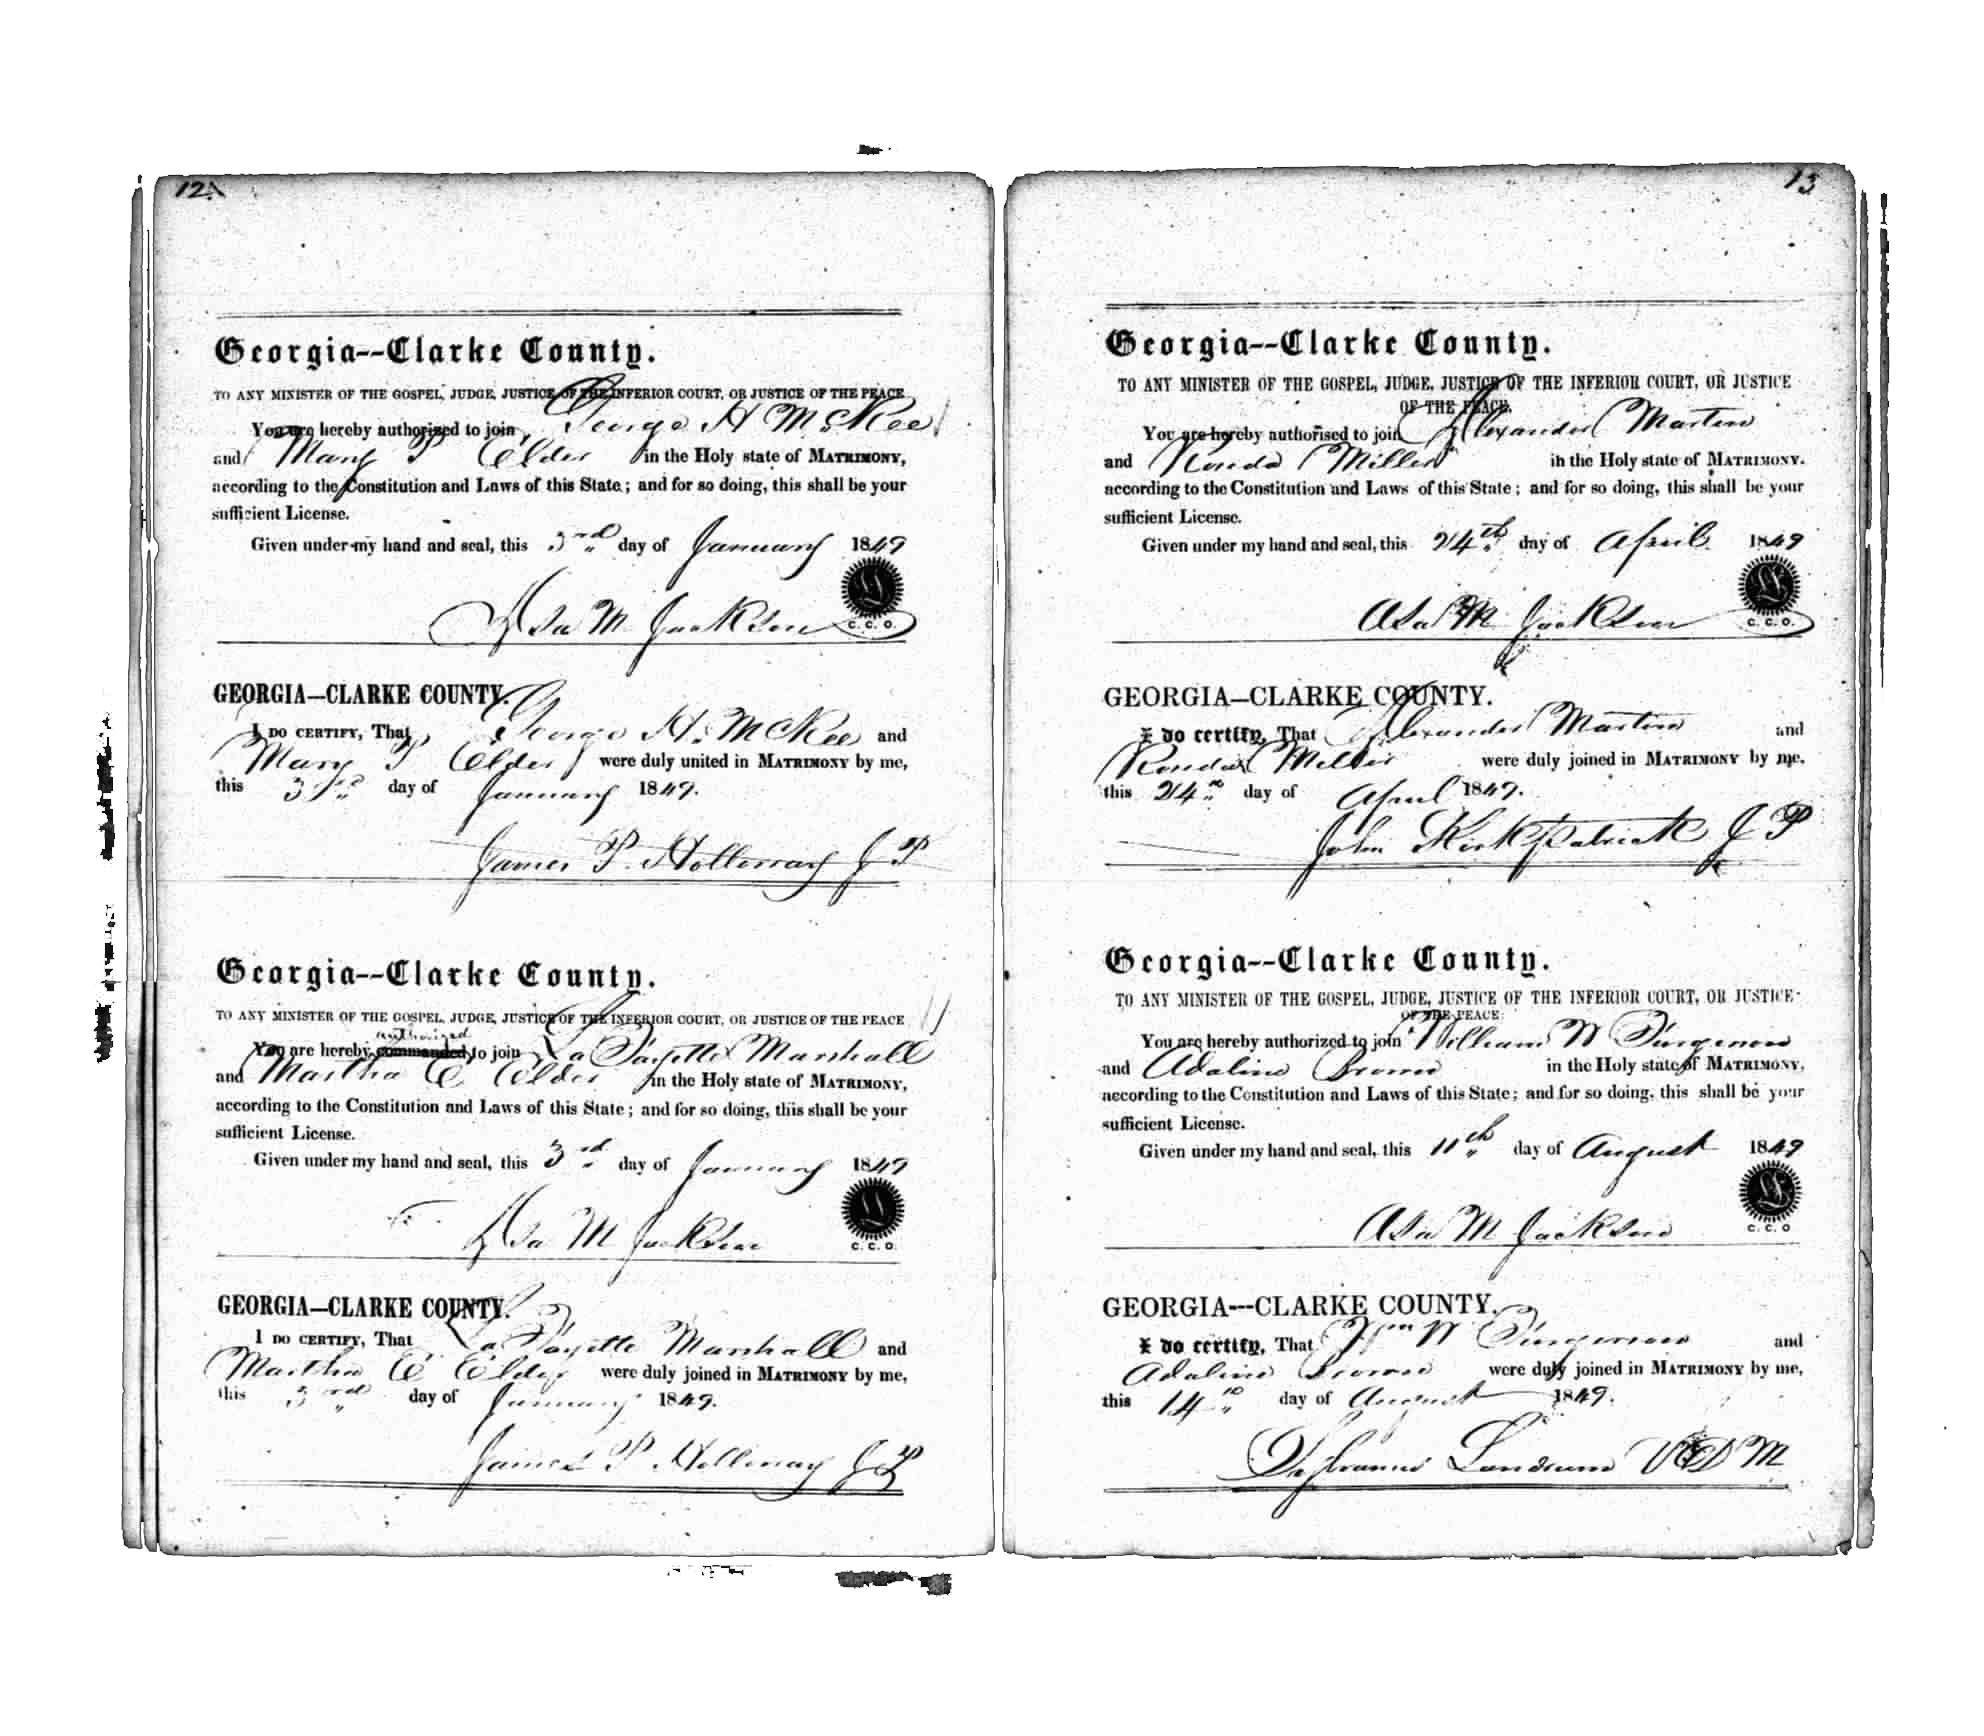 12
Georgia--Clarke County.
TO ANY MINISTER OF THE GOSPEL, JUDGE, JUSTICE OF THE INFERIOR COURT, OR JUSTICE OF THE PEACE
You are hereby authorized to join George H McKee
and Mary P Elder in the Holy state of MATRIMONY,
according to the Constitution and Laws of this State; and for so doing, this shall be your
sufficient License.
Given under my hand and seal, this 3rd day of January 1849
Asa M Jackson
C. C. O.
GEORGIA—CLARKE COUNTY.
I DO CERTIFY, That George H. McKee and
Mary P Elder were duly united in MATRIMONY by me,
this 3rd day of January 1849.
James P. Holloway J P
Georgia--Clarke County.
TO ANY MINISTER OF THE GOSPEL, JUDGE, JUSTICE OF THE INFERIOR COURT, OR JUSTICE OF THE PEACE
authorized
You are hereby commanded to join LaFayette Marshall
and Martha E Elder in the Holy state of MATRIMONY,
according to the Constitution and Laws of this State; and for so doing, this shall be your
sufficient License.
Given under my hand and seal, this 3rd day of January 1849
Asa M Jackson
C. C. O.
GEORGIA—CLARKE COUNTY.
I DO CERTIFY, That LaFayette Marshall and
Martha E Elder were duly joined in MATRIMONY by me,
this 3rd day of January 1849.
James P Holloway J P
13
Georgia--Clarke County.
TO ANY MINISTER OF THE GOSPEL, JUDGE, JUSTICE OF THE INFERIOR COURT, OR JUSTICE
OF THE PEACE.
You are hereby authorised to join Alexander Martin
and Miller in the Holy state of MATRIMONY.
according to the Constitution and Laws of this State; and for so doing, this shall be your
sufficient License.
Given under my hand and seal, this 24th day of April 1849
Asa M Jackson
C. C. O.
GEORGIA—CLARKE COUNTY.
I do certify, That Alexander Martin and
Miller were duly joined in MATRIMONY by me,
this 24th day of April 1849.
John Kirkpatrick J P
Georgia--Clarke County.
TO ANY MINISTER OF THE GOSPEL, JUDGE, JUSTICE OF THE INFERIOR COURT, OR JUSTICE
OF THE PEACE:
You are hereby authorized to join William W
and Adaline Brown in the Holy state of MATRIMONY,
according to the Constitution and Laws of this State; and for so doing, this shall be your
sufficient License.
Given under my hand and seal, this 11th day of August 1849
Asa M Jackson
C. C. O
GEORGIA---CLARKE COUNTY.
I do certify, That Wm W and
Adaline Brown were duly joined in MATRIMONY by me,
this 14th day of August 1849.
Landrum V D M